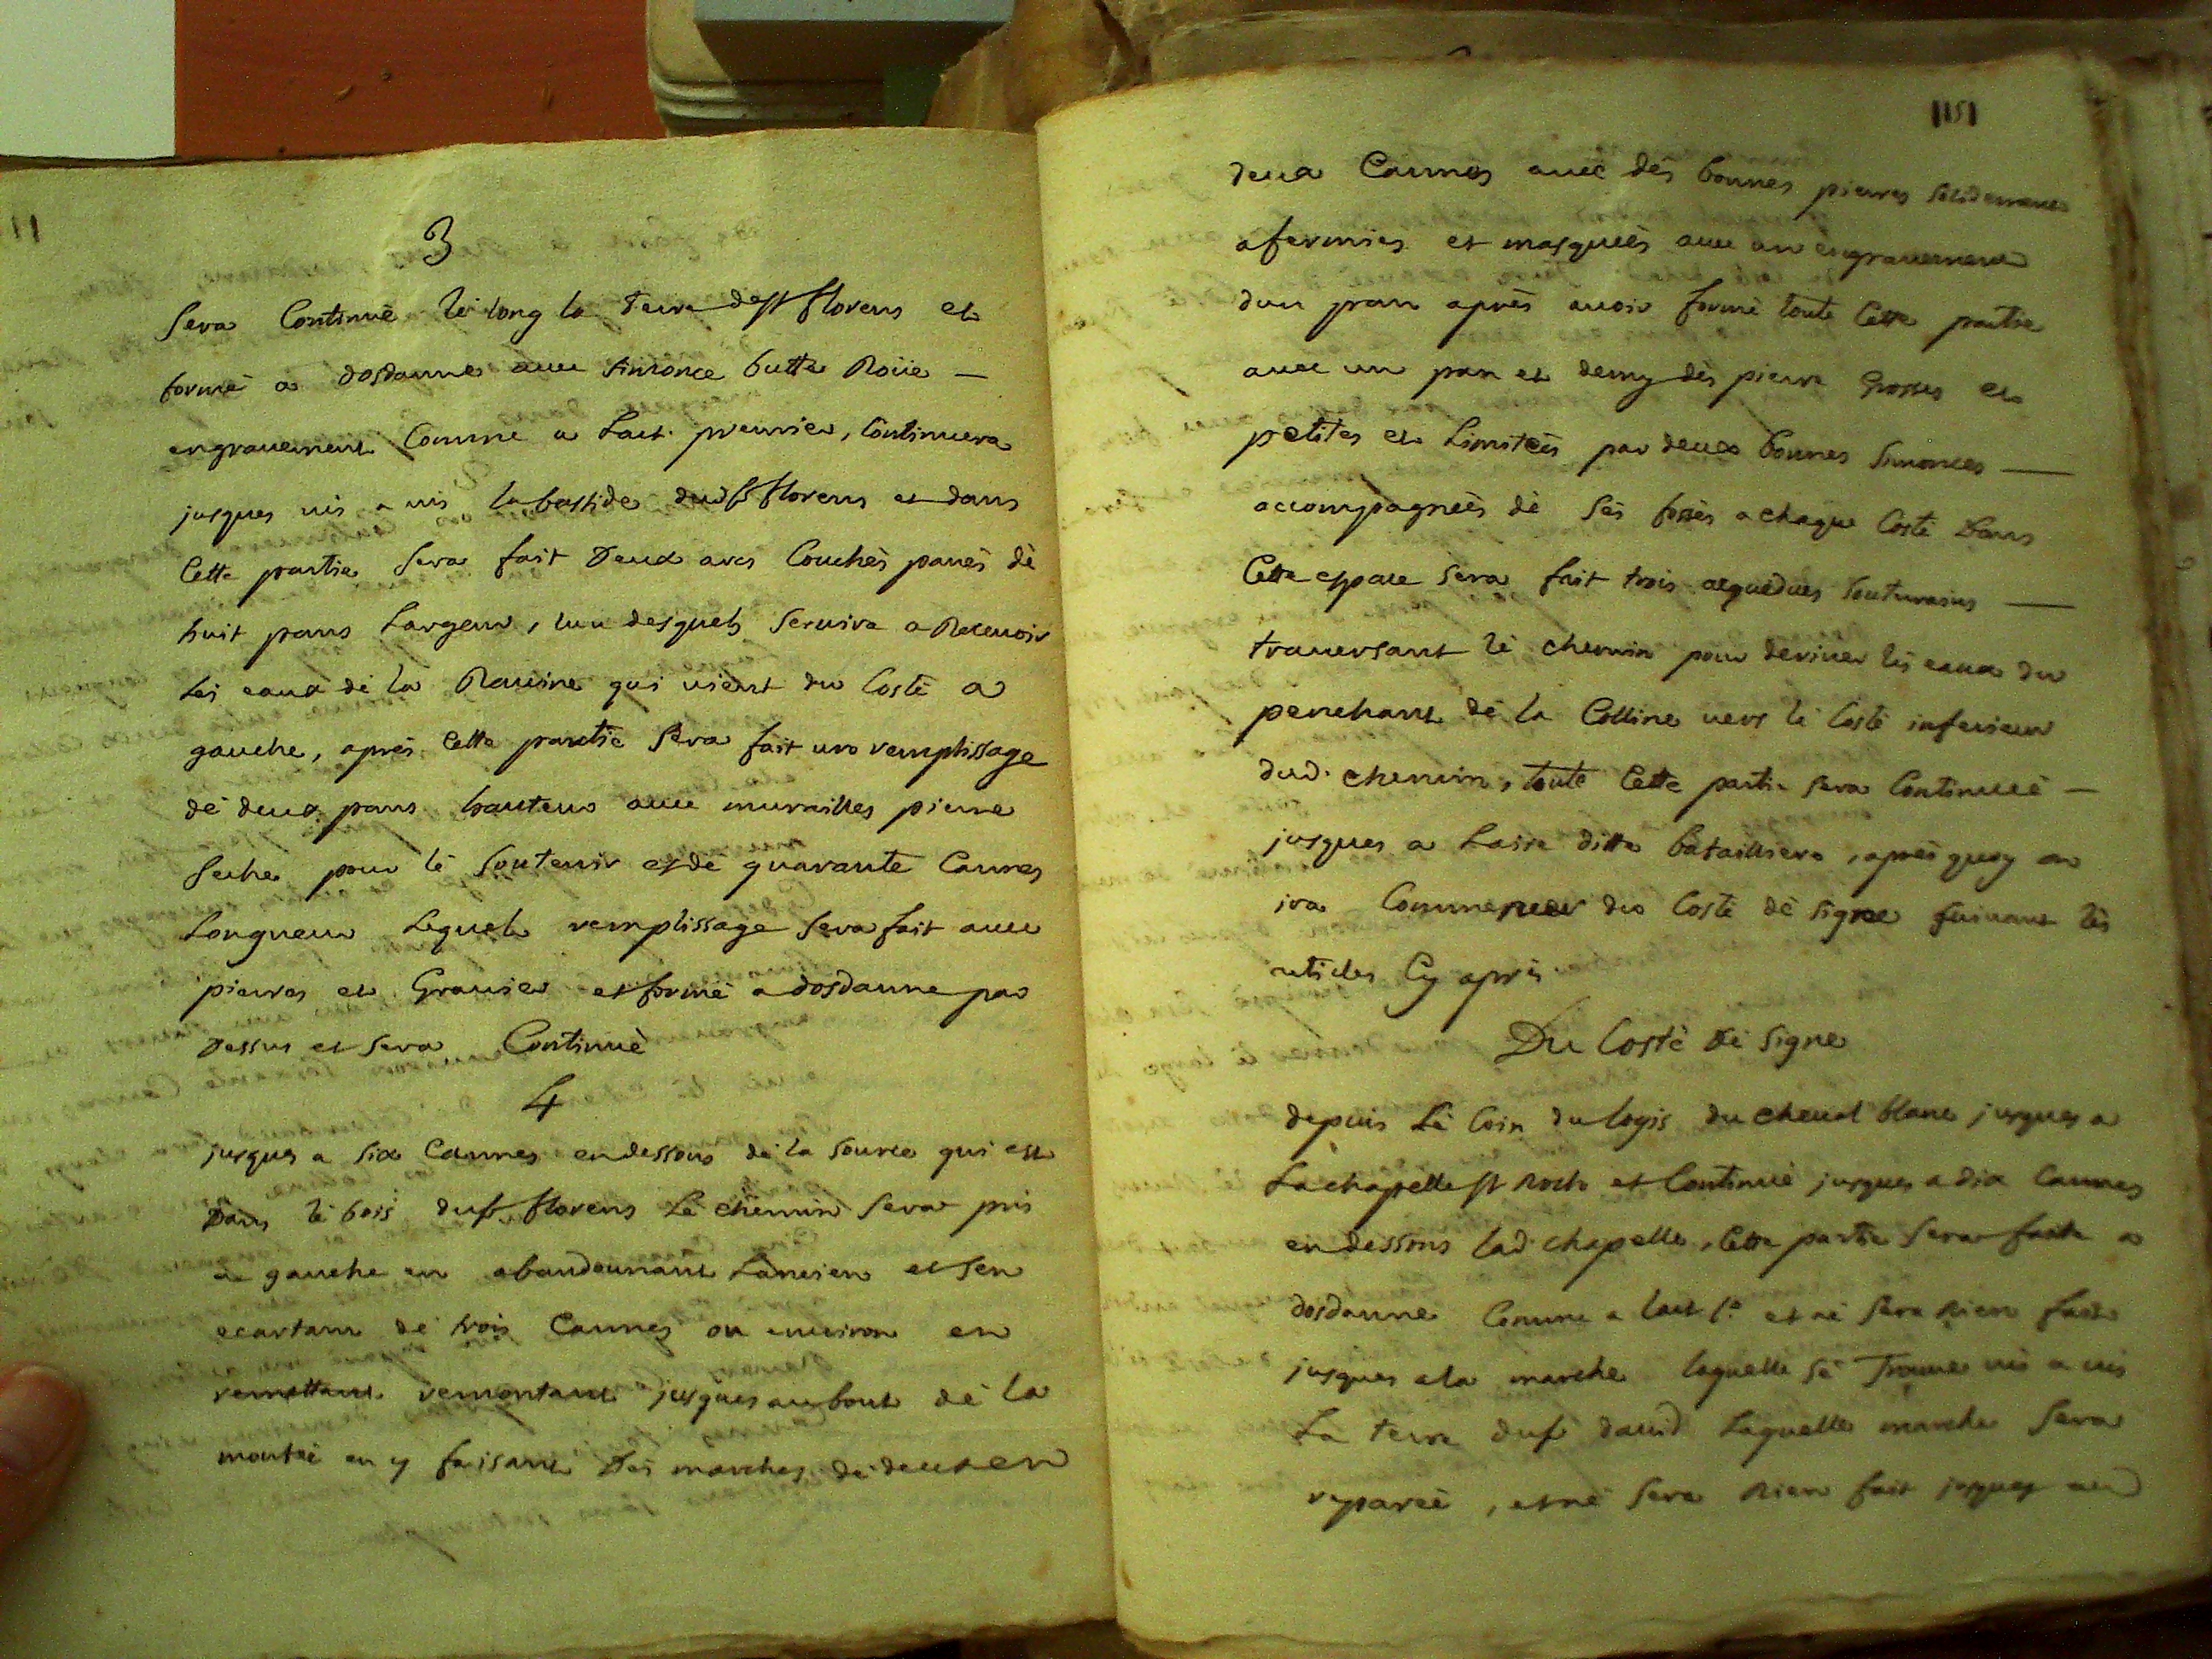 3
Sera Continué lé long la Terre de sr florens et
formé a dosdanne avec simonce butte Roüe —
engravement Comme a Lart. premier, Continuera
jusques vis a vis la bastide dud sr florens et dans
Cette partie Sera fait Deux arcs Couchés pavés dé
huit pans Largeur, lun desquels Servira a Recevoir
Lés eaux dé la Ravine qui vient du Costé a
gauche, aprés Cette partie Sera fait un remplissage
dé deux pans hauteur avec murailles pierre
Seche pour lé Soutenir et dé quarante Cannes
Longueur Lequel remplissage Sera fait avec
pierres et Gravier et formé a dosdanne par
Dessus et Sera Continué
4
jusques a Six Cannes en dessous dé la Source qui est
Dans lé bois du sr florens Lé chemin Sera pris
a gauche en abandounant Lancien et Sen
ecartant dé trois Cannes ou environ en
remettant remontant jusques au bout dé la
montéé en y faisant Dés marches dé deux en
151
deux Cannes avec dés bonnes pierres Solidement
afermies et masquéés avec un engravement
dun pan aprés avoir formé toute Cette partie
avec un pan et demy dés pierre Grosses et
petites et Limitéés par deux bonnes Simonces —
accompagnéés dé Sés fossés a chaque Costé Dans
Cette espace Sera fait trois aequeducs Souterains —
traversant lé chemin pour deriver lés eaux du
penchant dé la Colline vers lé Costé inferieur
dud. chemin, toute Cette partie Sera Continuéé —
jusques a Laire ditte batailliere, aprés quoy on
ira Commencer du Costé dé Signe suivant lés
articles Cy aprés
Du Costé Dé Signe
depuis Lé Coin du logis du cheval blanc jusques a
La chapelle st Roch et Continué jusques a dix Cannes
en dessous lad chapelle, Cette partie Sera faite a
dosdanne Comme a lart 1.er et né Sera Rien fait
jusques a la marche laquelle Sé Trouve vis a vis
La terre du sr david Laquelle marche Sera
reparéé, et né Sera Rien fait jusques au